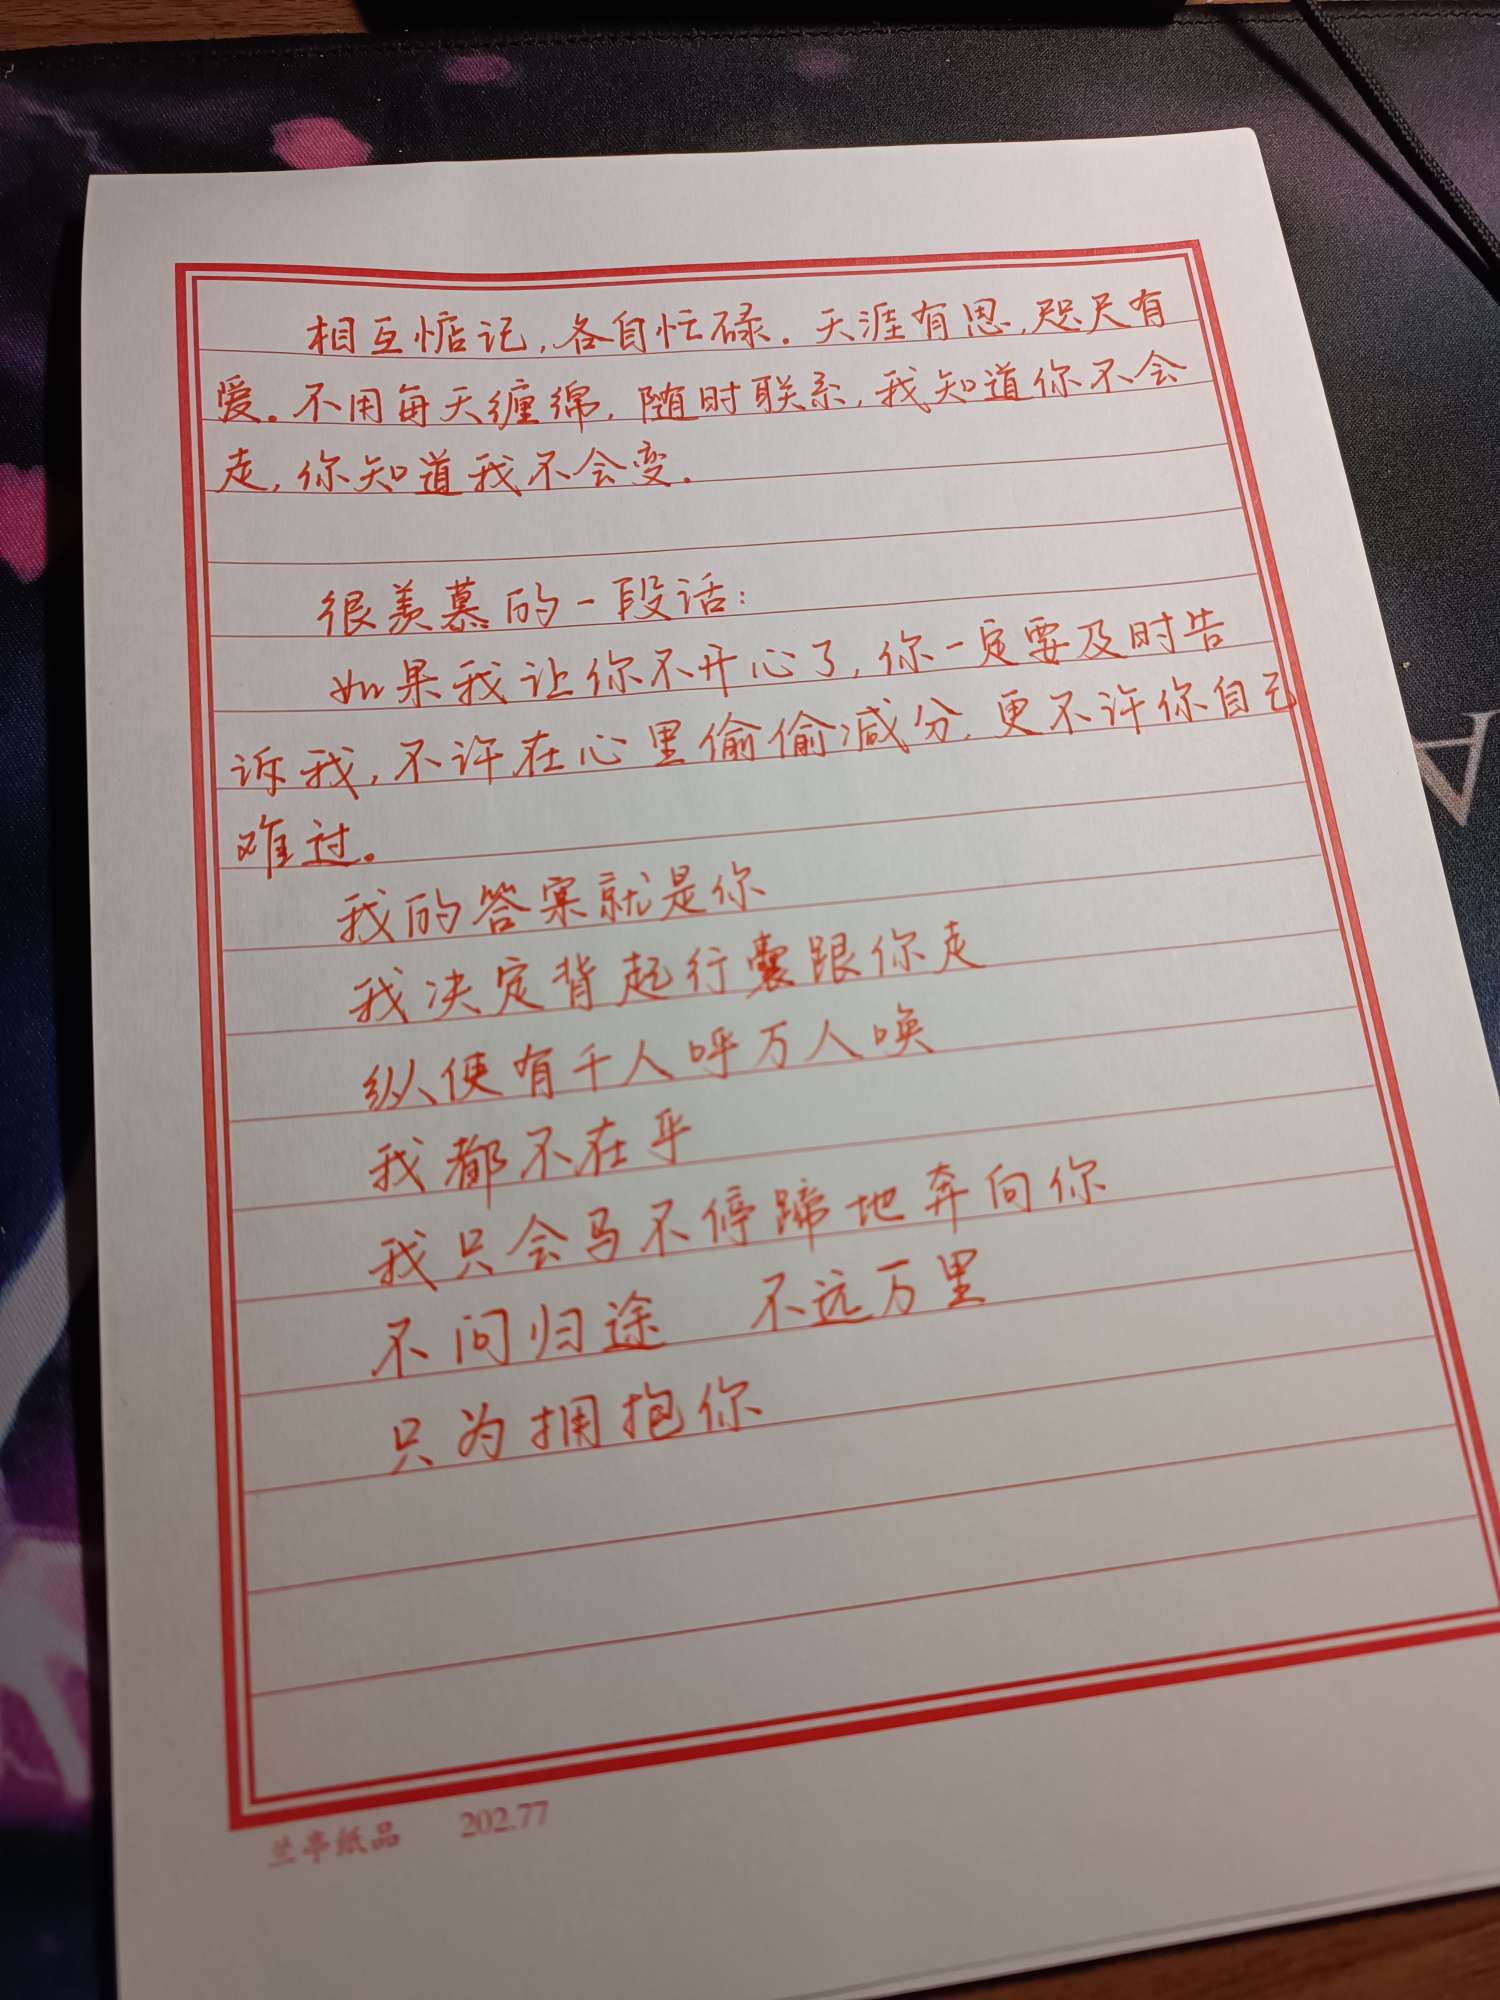 相互惦记,各自忙碌.天涯有思,咫尺有
爱.不用每天缠绵,随时联系,我知道你不会
走,你知道我不会变.
很羡慕的一段话:
如果我让你不开心了,你一定要及时告
诉我,不许在心里偷偷减分,更不许你自己
难过.
我的答案就是你
我决定背起行囊跟你走
纵使有千人呼万人唤
我都不在乎
我只会马不停蹄地奔向你
不问归途 不远万里
只为拥抱你
兰亭纸品 202.77
A